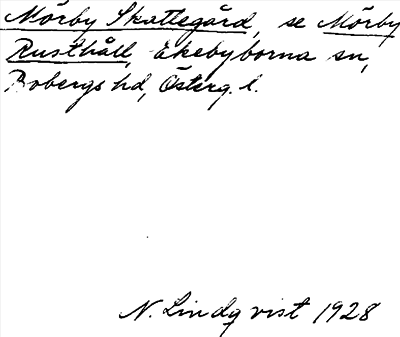 Mörby Skattegård, se Mörby
Rusthåll, Ekebyborna sn,
Bobergs hd, Österg. l.
N. Lindqvist 1928